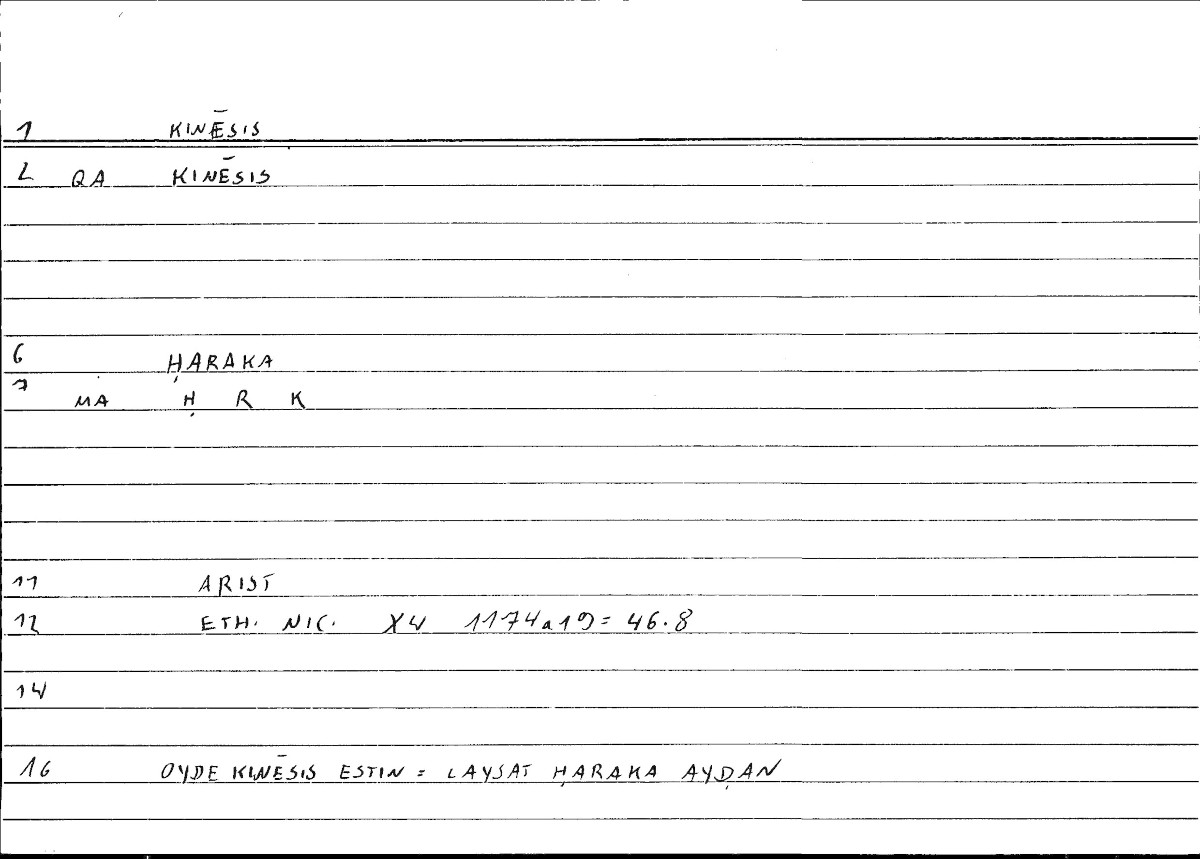 1 KINĒSIS
2 QA KINĒSIS
6 ḤARAKA
7 MA Ḥ R K
11 ARIST
12 ETH. NIC. X4 1174a19= 46.8
14
16 OYDE KINĒSIS ESTIN = LAYSAT ḤARAKA AYḌAN